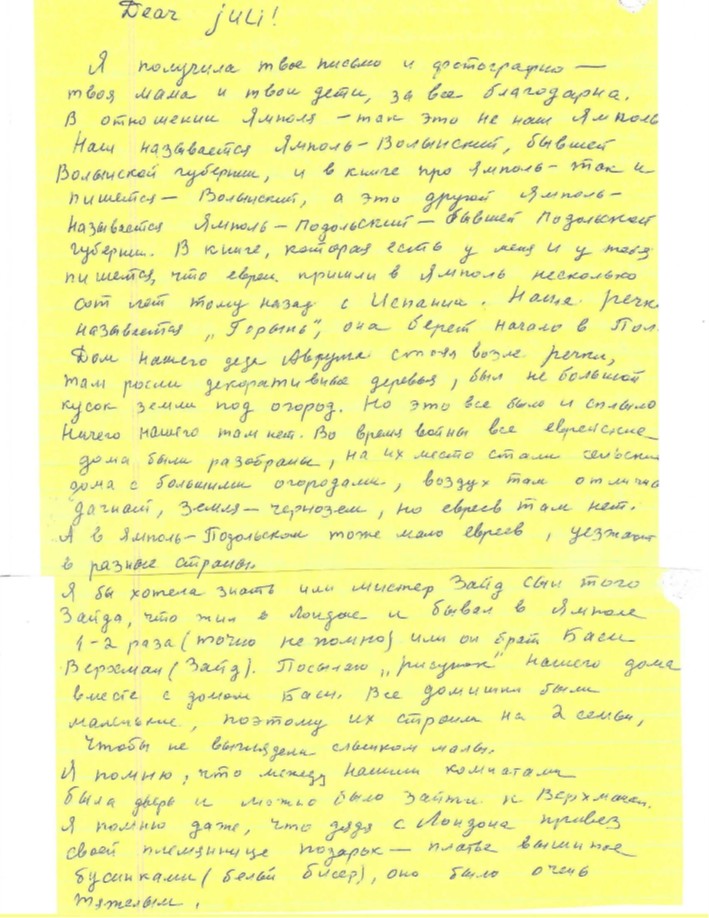 Dear juli!
Я получила твое письмо и фотографию —
твоя мама и твои дети, за все благодарна.
В отношении Ямполя — так это не наш Ямполь
Наш называется Ямполь-Волынский, бывшей
Волынской губернии, и в книге про Ямполь- так и
пишется — Волынский, а это другой Ямполь-
называется Ямполь-Подольский — бывшей Подольской
губернии. В книге, которая есть у меня и у тебя
пишется, что евреи пришли в Ямполь несколько
сот лет тому назад с Испании. Наша речк
называется „Горынь", она берет начало в Пол
Дом нашего деда Аврума стоял возле речки,
там росли декоративные деревья, был не большой
кусок земли под огород. Но это все было и сплыло
Ничего нашего там нет. Во время войны все еврейские
дома были разобраны, на их место стали сельски
дома с большими огородами, воздух там отлично
дачный, земля — чернозем, но евреев там нет.
А в Ямполь-Подольском тоже мало евреев, уезжают
в разные страны.
Я бы хотела знать или мистер Зайд сын того
Зайда, что жил в Лондоне и бывал в Ямполе
1-2 раза (точно не помню) или он брат Баси
Верхман (Зайд). Посылаю „рисунок" нашего дома
вместе с домом Баси. Все домишки были
маленькие, поэтому их строили на 2 семьи,
чтобы не выглядели слишком малы.
Я помню, что между нашими комнатами
была дверь и можно было зайти к Верхманам.
Я помню даже, что дядя с Лондона привез
своей племяннице подарок — платье вышитое
бусинками (белый бисер), оно было очень
тяжелым.